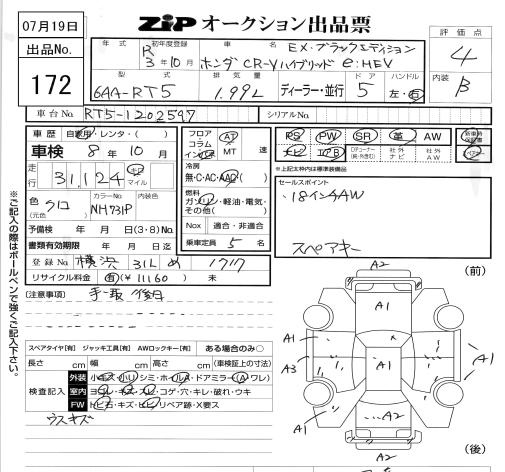 07月19日
出品No.
172
ZiP オークション出品票
評価点
4
内装
B
年式
R
初年度登録
3年10月
車名
EX・ブラックエディション
ホンダ CR-V ハイブリッド e:HEV
型式
6AA-RT5
排気量
1.99L
ディーラー・並行
ドア
5
ハンドル
左・右
車台No.
RT5-1202597
シリアルNo.
車歴
自家用・レンタ・( )
車検
8年10月
走行
31,124
キロ
マイル
色
(元色)
クロ
カラーNo.
NH731P
内装色
予備検 年 月 日(3・8)No.
書類有効期限 年 月 日迄
登録No
横浜 31L め 1717
リサイクル料金 有(¥11160) 未
フロア
コラム
インパネ
AT
MT
速
冷房
無・C・AC・AAC
燃料
ガソリン・軽油・電気・
その他( )
Nox 適合・非適合
乗車定員 5 名
PS
PW
SR
革
AW
ナビ
エアB
社外
ナビ
社外
AW
新車時
保証書
※上記太枠内は標準装備品
セールスポイント
・18インチAW
スペアキー
(注意事項)
スペアタイヤ[有] ジャッキ工具[有] AWロックキー[有] ある場合のみ○
長さ cm 幅 cm 高さ cm (車検証上の寸法)
検査記入
外装
小キズ・小U シミ・ホールA・ドアミラー(A・ワレ)
室内
ヨゴレ・キズ・スレ・コゲ・穴・キレ・破れ・ウキ
FW
トビ石・キズ・ヒビ・リペア跡・X要ス
ウスキズ
※ご記入の際はボールペンで強くご記入下さい。
(前)
A2
A1
A1
A3
A1
A1
A1
A2
A2
(後)